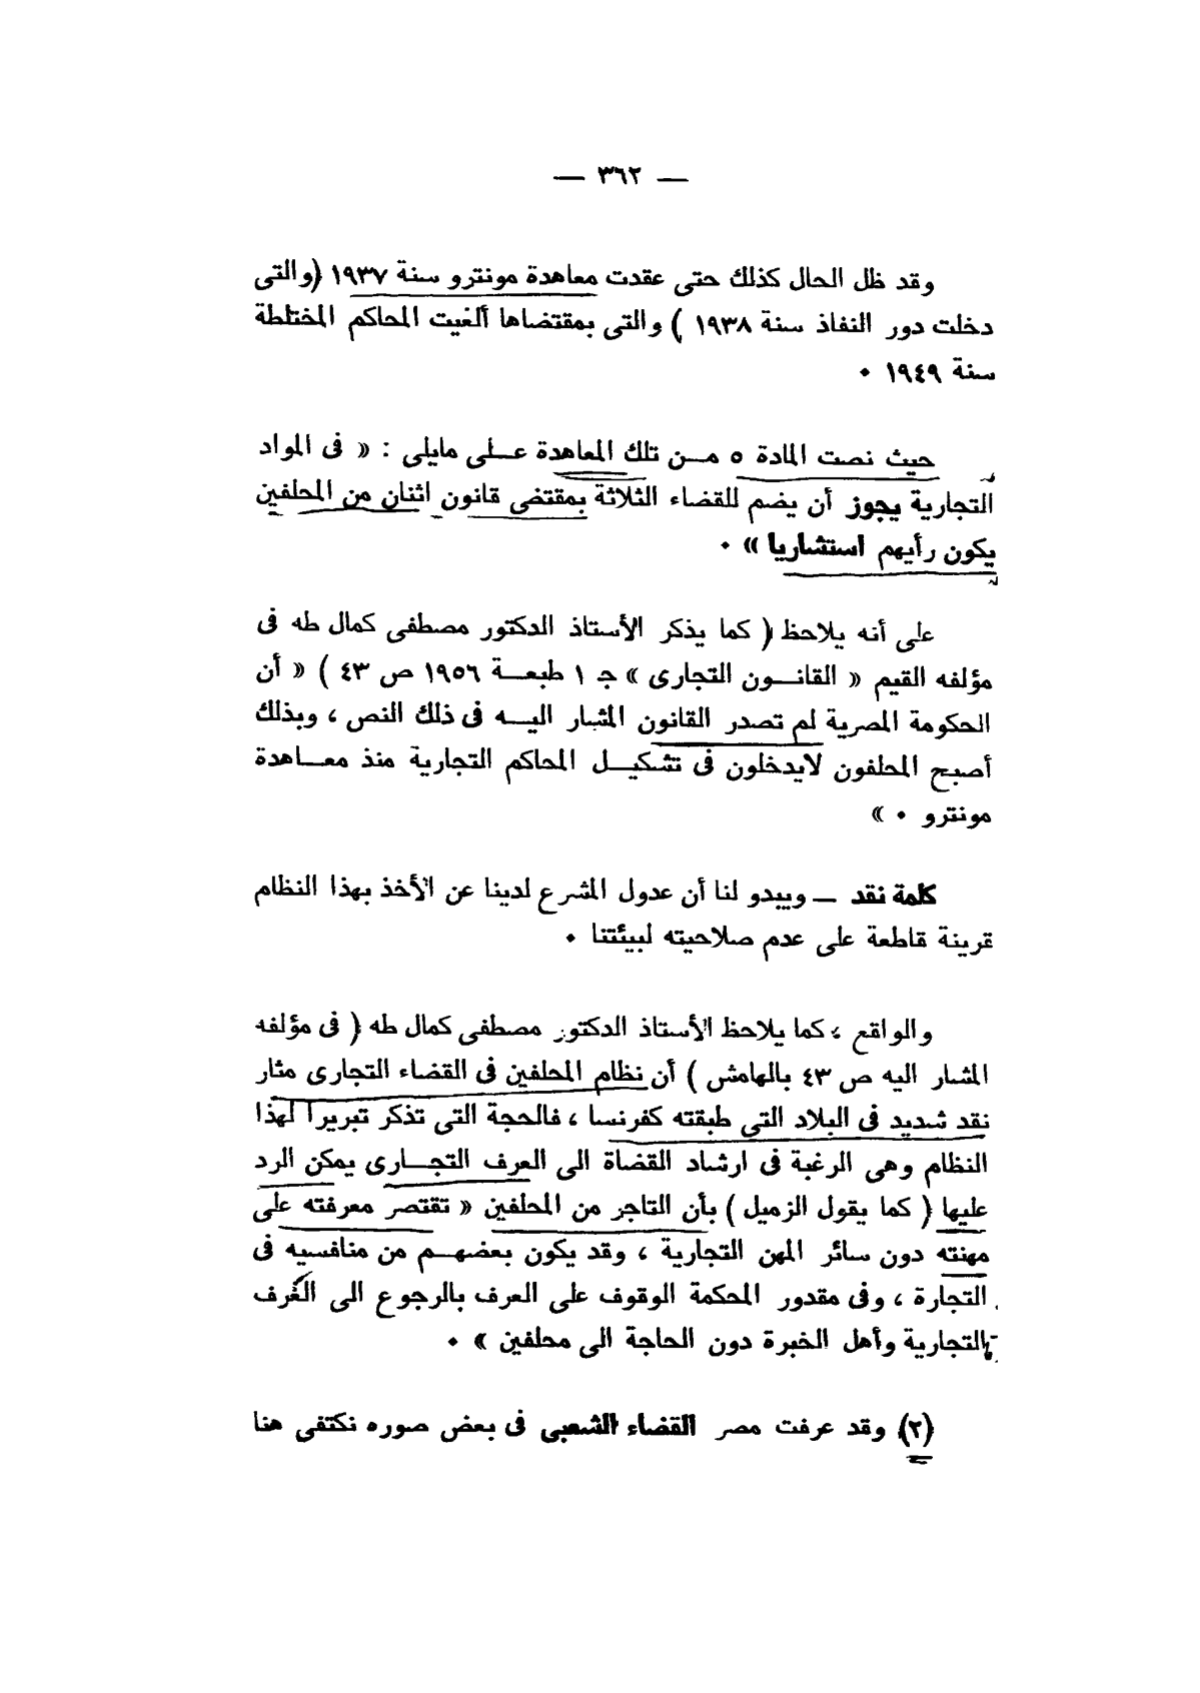 — ٣٦٢ —
وقد ظل الحال كذلك حتى عقدت معاهدة مونترو سنة ١٩٣٧ (والتى
دخلت دور النفاذ سنة ١٩٣٨ ) والتى بمقتضاها ألغيت المحاكم المختلطة
سنة ١٩٤٩ ٠
حيث نصت المادة ٥ مـن تلك المعاهدة عـلى مايلى : « فى المواد
التجارية يجوز أن يضم للقضاء الثلاثة بمقتضى قانون اثنان من المحلفين
يكون رأيهم استشاريا » ٠
على أنه يلاحظ ( كما يذكر الأستاذ الدكتور مصطفى كمال طه فى
مؤلفه القيم « القانـون التجارى » جـ ١ طبعـة ١٩٥٦ ص ٤٣ ) « أن
الحكومة المصرية لم تصدر القانون المشار اليـه فى ذلك النص ، وبذلك
أصبح المحلفون لايدخلون فى تشكيـل المحاكم التجارية منذ معـاهدة
مونترو ٠ »
كلمة نقد ــ ويبدو لنا أن عدول المشرع لدينا عن الأخذ بهذا النظام
قرينة قاطعة على عدم صلاحيته لبيئتنا ٠
والواقع ، كما يلاحظ الأستاذ الدكتور مصطفى كمال طه ( فى مؤلفه
المشار اليه ص ٤٣ بالهامش ) أن نظام المحلفين فى القضاء التجارى مثار
نقد شديد فى البلاد التى طبقته كفرنسا ، فالحجة التى تذكر تبريرا لهذا
النظام وهى الرغبة فى ارشاد القضاة الى العرف التجـارى يمكن الرد
عليها ( كما يقول الزميل ) بأن التاجر من المحلفين « تقتصر معرفته على
مهنته دون سائر المهن التجارية ، وقد يكون بعضهـم من منافسيه فى
التجارة ، وفى مقدور المحكمة الوقوف على العرف بالرجوع الى الغُرف
التجارية وأهل الخبرة دون الحاجة الى محلفين » ٠
(٢) وقد عرفت مصر القضاء الشعبى فى بعض صوره نكتفى هنا